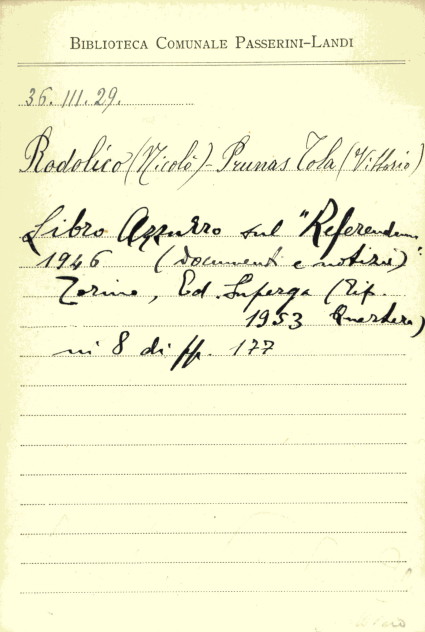 BIBLIOTECA COMUNALE PASSERINI-LANDI
36.III.29.
Rodolico (Nicolò) - Prunas Tola (Vittorio)
Libro Azzurro sul "Referendum"
1946 (documenti e notizie)
Torino, Ed. Superga (Tip.
1953 Quartera)
in 8 di pp. 177